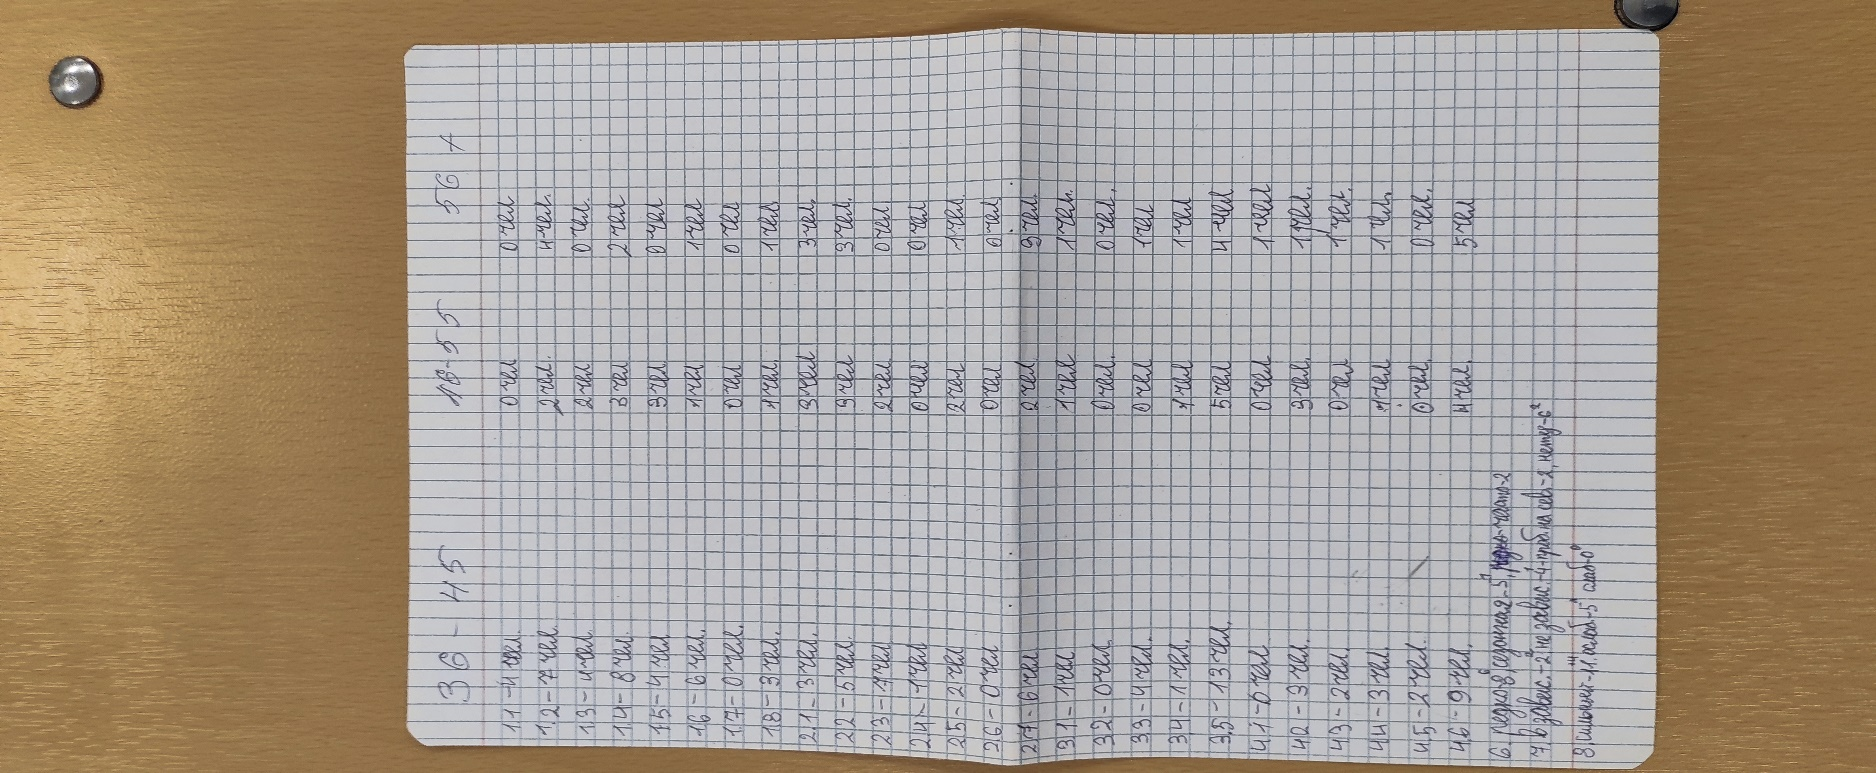 36-45 46-55 56+
1.1-4 чел. 0 чел 0 чел
1.2-7 чел. 2 чел. 4 чел.
1.3-4 чел. 2 чел 0 чел.
1.4-8 чел. 3 чел 2 чел
1.5-4 чел 3 чел 0 чел
1.6-6 чел. 1 чел 1 чел
1.7-0 чел. 0 чел 0 чел
1.8-3 чел. 1 чел. 1 чел.
2.1-3 чел. 3 чел 3 чел.
2.2-5 чел. 3 чел 3 чел.
2.3-1 чел 2 чел 0 чел
2.4-1 чел 0 чел 0 чел
2.5-2 чел 2 чел 1 чел.
2.6-0 чел 0 чел 0 чел
2.7-6 чел 2 чел. 3 чел.
3.1-1 чел 1 чел 1 чел.
3.2-0 чел. 0 чел. 0 чел.
3.3-4 чел. 0 чел 1 чел
3.4-1 чел. 1 чел 1 чел
3.5-13 чел. 5 чел 4 чел
4.1-0 чел 0 чел 1 чел
4.2-3 чел. 3 чел. 1 чел.
4.3-2 чел. 0 чел 1 чел.
4.4-3 чел 1 чел 1 чел.
4.5-2 чел. 0 чел. 0 чел.
4.6-9 чел. 4 чел. 5 чел
6. редко-8, часто-2
7. 2, не завис.-4, 2, нету-6
8.